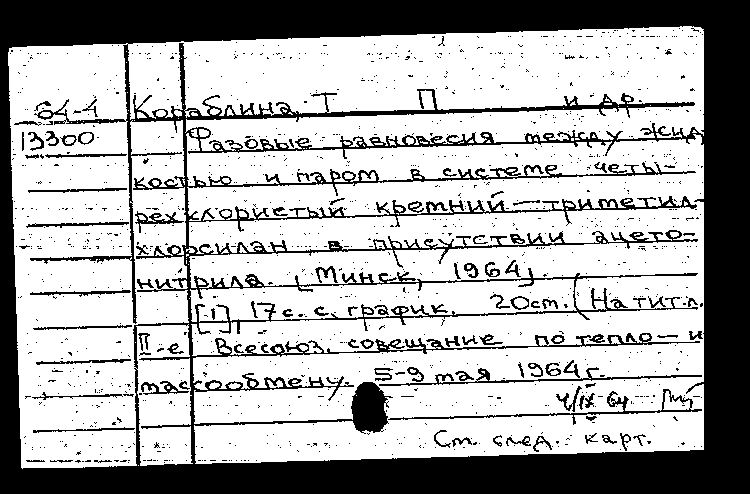 64-4 Кораблина, Т П и др.
13300 Фазовые равновесия между жид
костью и паром в системе четы-
рёххлористый кремний — триметил-
хлорсилан в присутствии ацето-
нитрила. [Минск, 1964].
[1], 17 с. с. график. 20 см. (На тит. л.
II-е Всесоюз. совещание по тепло- и
массообмену. 5-9 мая 1964 г.
4/IX 64
См. след. карт.